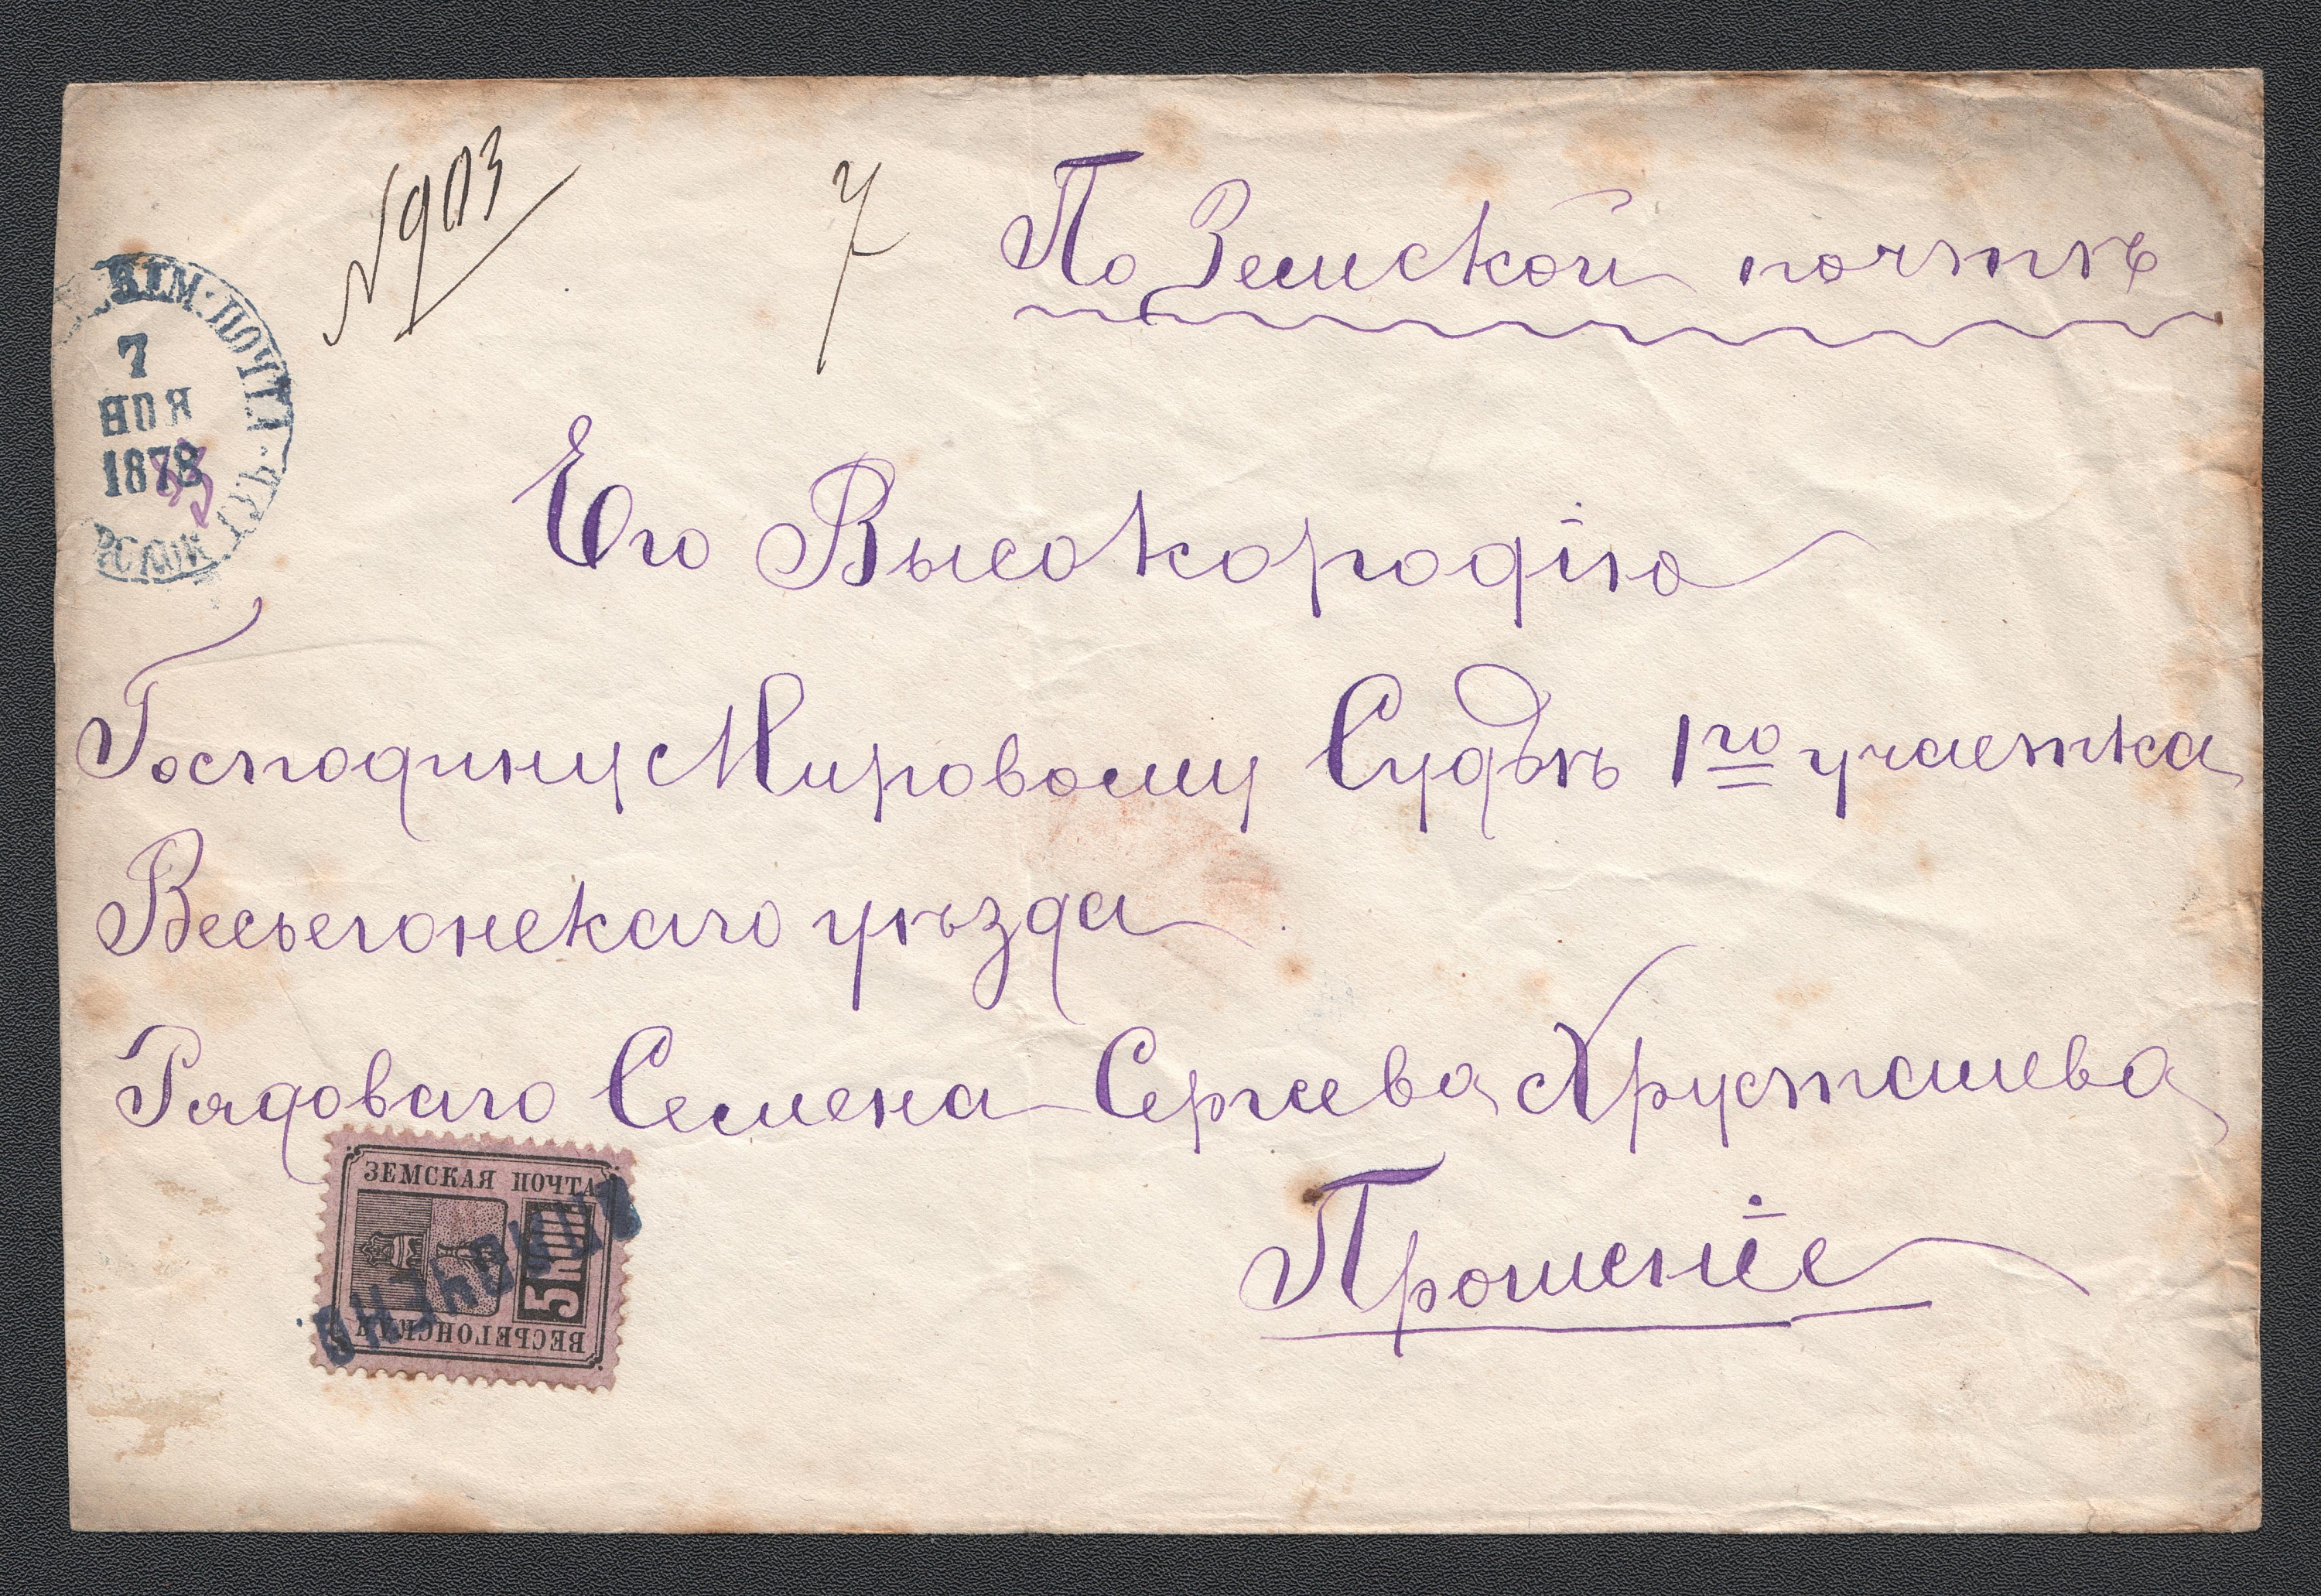 № 903
7
По Земской почтѣ
7
НОЯ
1878
Его Высокородію
Господину Мировому Судьѣ 1го участка
Весьегонскаго уѣзда
Рядоваго Семена Сергеева Хрусташева
ЗЕМСКАЯ ПОЧТА
5 КОП
ВЕСЬЕГОНСКАЯ
Прошеніе